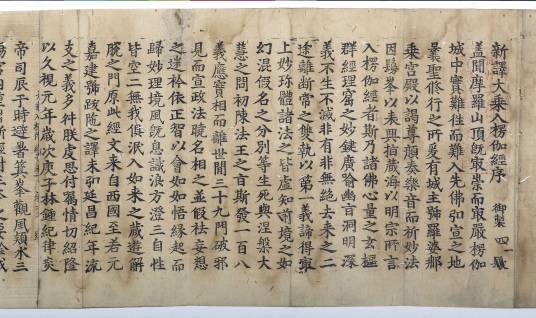 新譯大乘入楞伽經序 御製
蓋聞摩羅山頂既最崇而最嚴楞伽
城中實難往而難入先佛弘宣之地
曩聖修行之所爰有城主號羅婆那
乘宮殿以謁尊顏奏樂音而祈妙法
因鬘峯以表興指藏海以明宗所言
入楞伽經者斯乃諸佛心量之玄樞
群經理窟之妙鍵廣喻幽旨洞明深
義不生不滅非有非無絕去來之二
途離斷常之雙執以第一義諦得最
上妙珎體諸法之皆虛知前境之如
幻混假名之分別等生死與涅槃大
慧之問初陳法王之旨斯發一百八
義應實相而離世間三十九門破邪
見而宣政法曉名相之並假祛妄想
之迷衿依正智以會如如悟緣起而
歸妙理境風既息識浪方澄三自性
皆空二無我俱泯入如來之藏遊解
脫之門原此經文來自西國至若元
嘉建號跋陁之譯未弘延昌紀年流
支之義多舛朕虔思付囑情切紹隆
以久視元年歲次庚子林鍾紀律炎
帝司辰于時避暑箕峯觀風潁水三